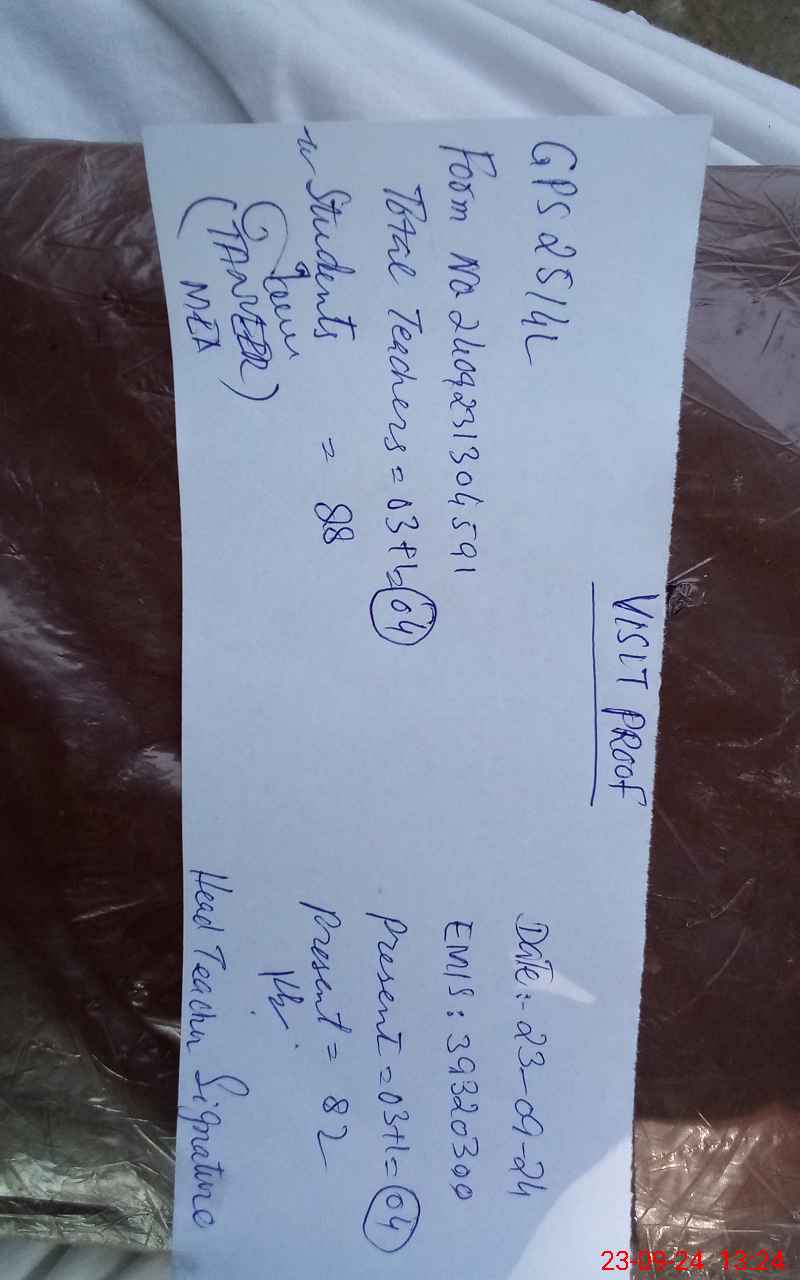 VISIT PROOF
GPS 25/4L Date:- 23-09-24
Form No 2409231304591 EMIS: 39320300
Total Teachers = 03+1= 04 Present = 03+1= 04
" Students = 88 Present = 82
(TANVEER)
MEA Head Teacher Signature
23-09-24 13:24